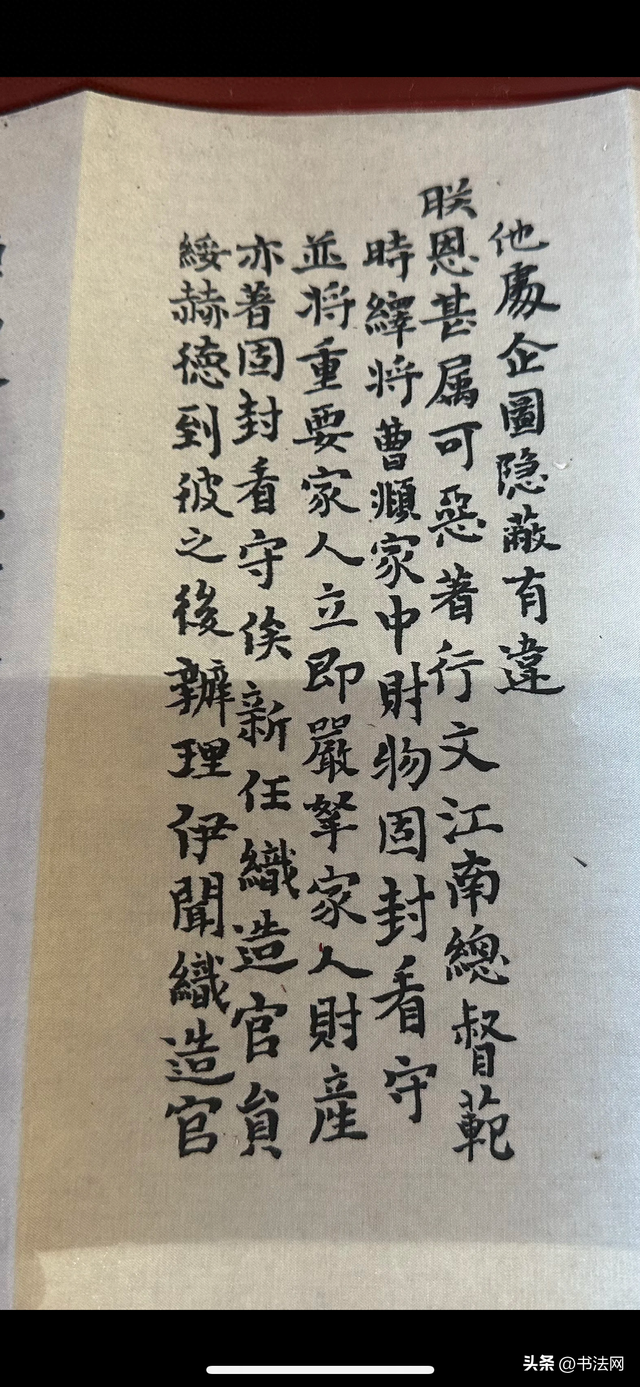 他處企圖隐蔽有違
朕恩甚属可惡著行文江南總督範
時繹將曹頫家中財物固封看守
並將重要家人立即嚴拏家人財產
亦著固封看守俟新任織造官員
綏赫德到彼之後辦理伊聞織造官
头条 @书法网